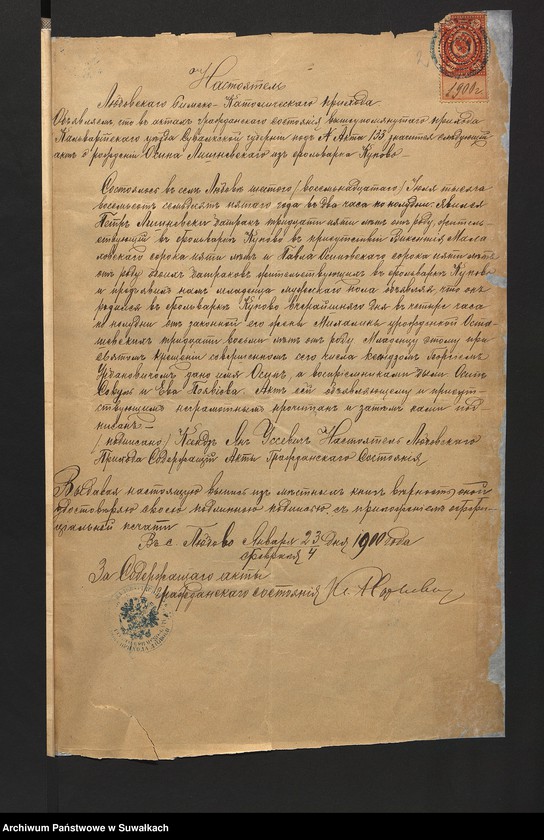 Настоятель
Людвовскаго Римско-Католическаго прихода
Объявляетъ что въ актахъ гражданскаго состоянія вышеупомянутаго прихода
Кальварійскаго уѣзда Сувалкской губерніи подъ № Акта 133 значится слѣдующій
актъ о рожденіи Осипа изъ фольварка Куково
Состоялось въ селѣ шестого /восемнадцатаго/ Іюня тысяча
восемьсотъ семьдесятъ пятаго года въ два часа по полудни. Явился
Петръ батракъ тридцати пяти лѣтъ отъ роду, житель-
ствующій въ фольваркѣ Куково въ присутствіи Викентія
сорока пяти лѣтъ и Павла сорока пяти лѣтъ
отъ роду обоихъ батраковъ жительствующихъ въ фольваркѣ Куково
и предъявилъ намъ младенца мужескаго пола объявляя что онъ
родился въ фольваркѣ Куково вчерашняго дня въ четыре часа
по полудни отъ законной его жены урожденной Оста-
шевскихъ тридцати восьми лѣтъ отъ роду. Младенцу этому при
святомъ крещеніи совершенномъ сего числа Ксендзомъ Георгіемъ
Урбановичемъ дано имя Осипъ, а воспріемниками были Осипъ
и Ева. Актъ сей объявляющему и присут-
ствующимъ неграмотнымъ прочитанъ и затѣмъ нами под-
писанъ.
/подписано/ Ксендзъ Янъ Уссевичъ Настоятель
Прихода Содержащій Акты Гражданскаго Состоянія,
Выдавая настоящую выпись изъ мѣстныхъ книгъ вѣрность оной
удостовѣряю своею подлинною подписью, съ приложеніемъ оффи-
ціальной печати
Въ с. Января 23 дня 1900 года
Февраля 4
За Содержащаго акты
гражданскаго состоянія Кс.
1900 г
Archiwum Państwowe w Suwałkach